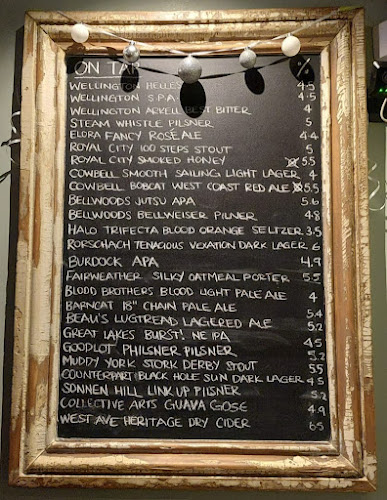 ON TAP %
WELLINGTON HELLES 4.5
WELLINGTON S.P.A. 4.5
WELLINGTON ARKELL BEST BITTER 4
STEAM WHISTLE PILSNER 5
ELORA FANCY ROSÉ ALE 4.4
ROYAL CITY 100 STEPS STOUT 5
ROYAL CITY SMOKED HONEY 5.5
COWBELL SMOOTH SAILING LIGHT LAGER 4
COWBELL BOBCAT WEST COAST RED ALE 5.5
BELLWOODS JUTSU APA 5.6
BELLWOODS BELLWEISER PILSNER 4.8
HALO TRIFECTA BLOOD ORANGE SELTZER 3.5
RORSCHACH TENACIOUS VEXATION DARK LAGER 6
BURDOCK APA 4.9
FAIRWEATHER SILKY OATMEAL PORTER 5.5
BLOOD BROTHERS BLOOD LIGHT PALE ALE 4
BARNCAT 18" CHAIN PALE ALE 5.4
BEAU'S LUGTREAD LAGERED ALE 5.2
GREAT LAKES BURST! NE IPA
GOODLOT PHILSNER PILSNER 4.5
MUDDY YORK STORK DERBY STOUT 5.2
COUNTERPART BLACK HOLE SUN DARK LAGER 5.5
SONNEN HILL LINK UP PILSNER 4.5
COLLECTIVE ARTS GUAVA GOSE 5.2
4.9
WEST AVE HERITAGE DRY CIDER 6.5